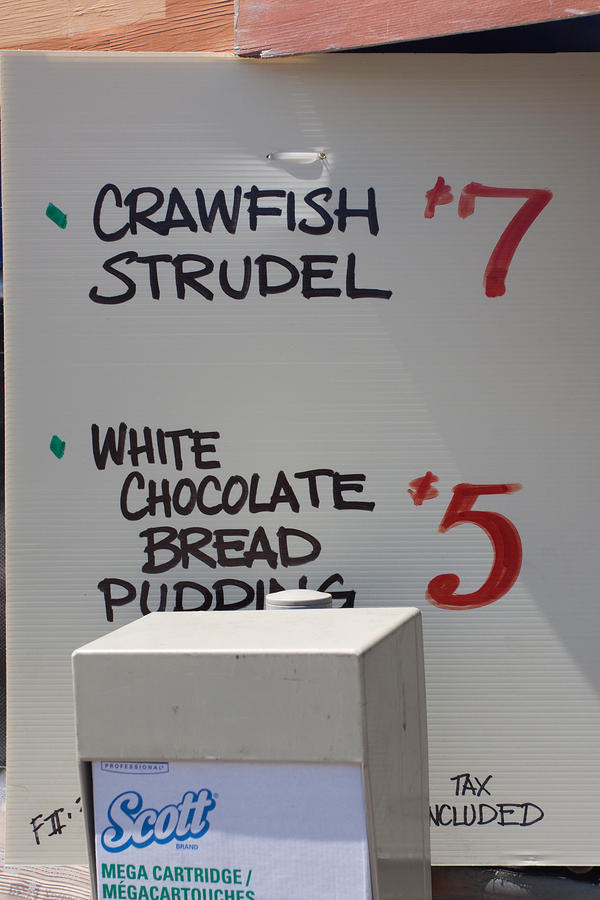 CRAWFISH $7
STRUDEL
WHITE
CHOCOLATE $5
BREAD
PUDDING
TAX
INCLUDED
PROFESSIONAL
Scott®
BRAND
MEGA CARTRIDGE /
MÉGACARTOUCHES